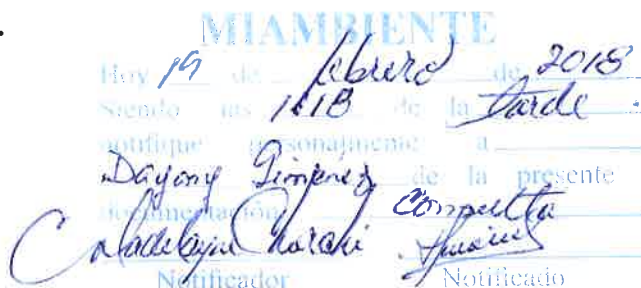 MIAMBIENTE
Hoy 19 de febrero de 2018
Siendo las 1:18 de la tarde
notifique personalmente a
Dayony Gimenez de la presente
documentación consulta
Notificador Notificado